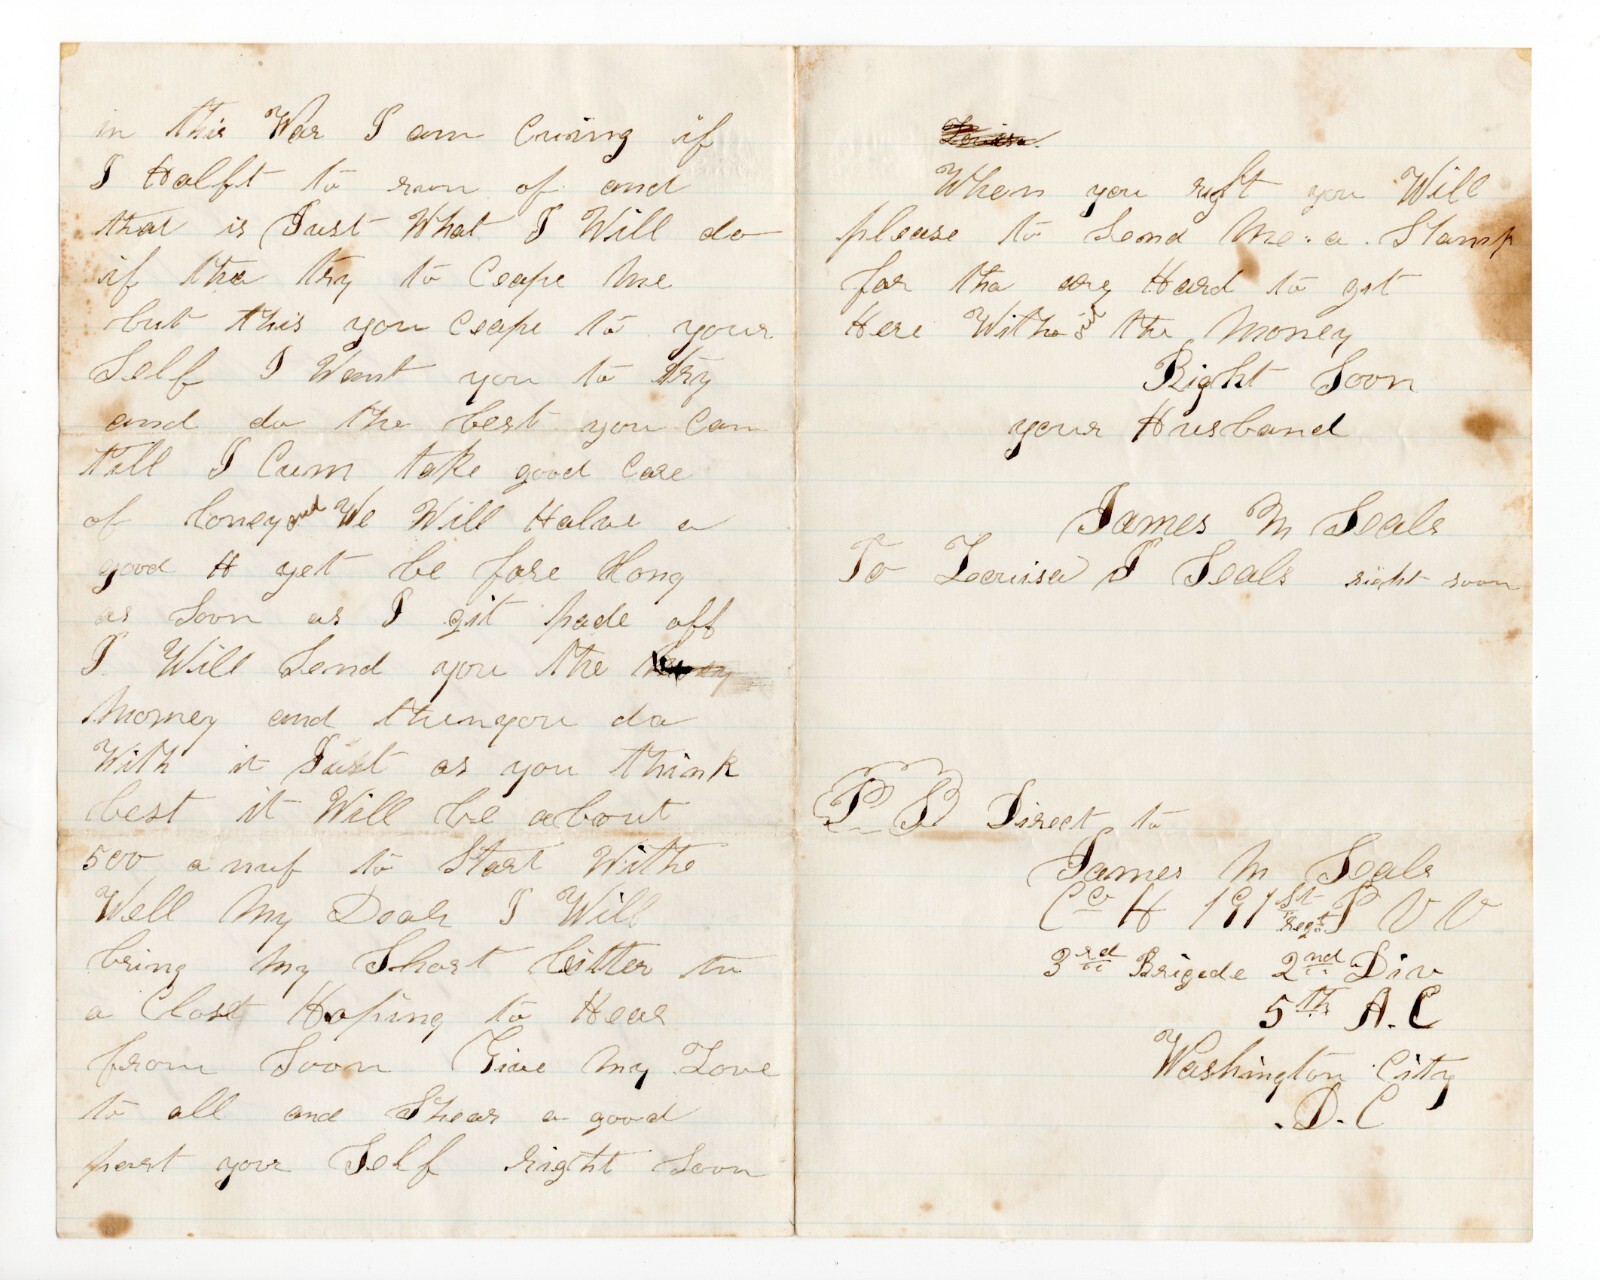 in this War I am Cuming if
I Halft to run of and
that is Just What I Will do
if tha try to Ceape me
but this you Ceape to your
Self I Want you to try
and do the best you Can
till I Cum take good Care
of Coney and We Will Halve a
good H yet be fore Hong
as Soon as I git pade off
I Will Send you the
Money and thenyou do
With it Just as you think
best it Will be about
500 a nuf to Start Withe
Well My Dear I Will
bring my Short Citter to
a Close Hoping to Hear
from Soon Give my Love
to all and Shear a good
part your Self right Soon
Louisa
When you right you Will
please to Send Me a Stamp
for tha arg Hard to get
Here Without the Money
Right Soon
your Husband
James M Seals
To Louisa J Seals right soon
P S Direct to
James M Seals
Co H 191st Regt P V V
3rd Brigade 2nd Div
5th A.C
Washington City
D.C